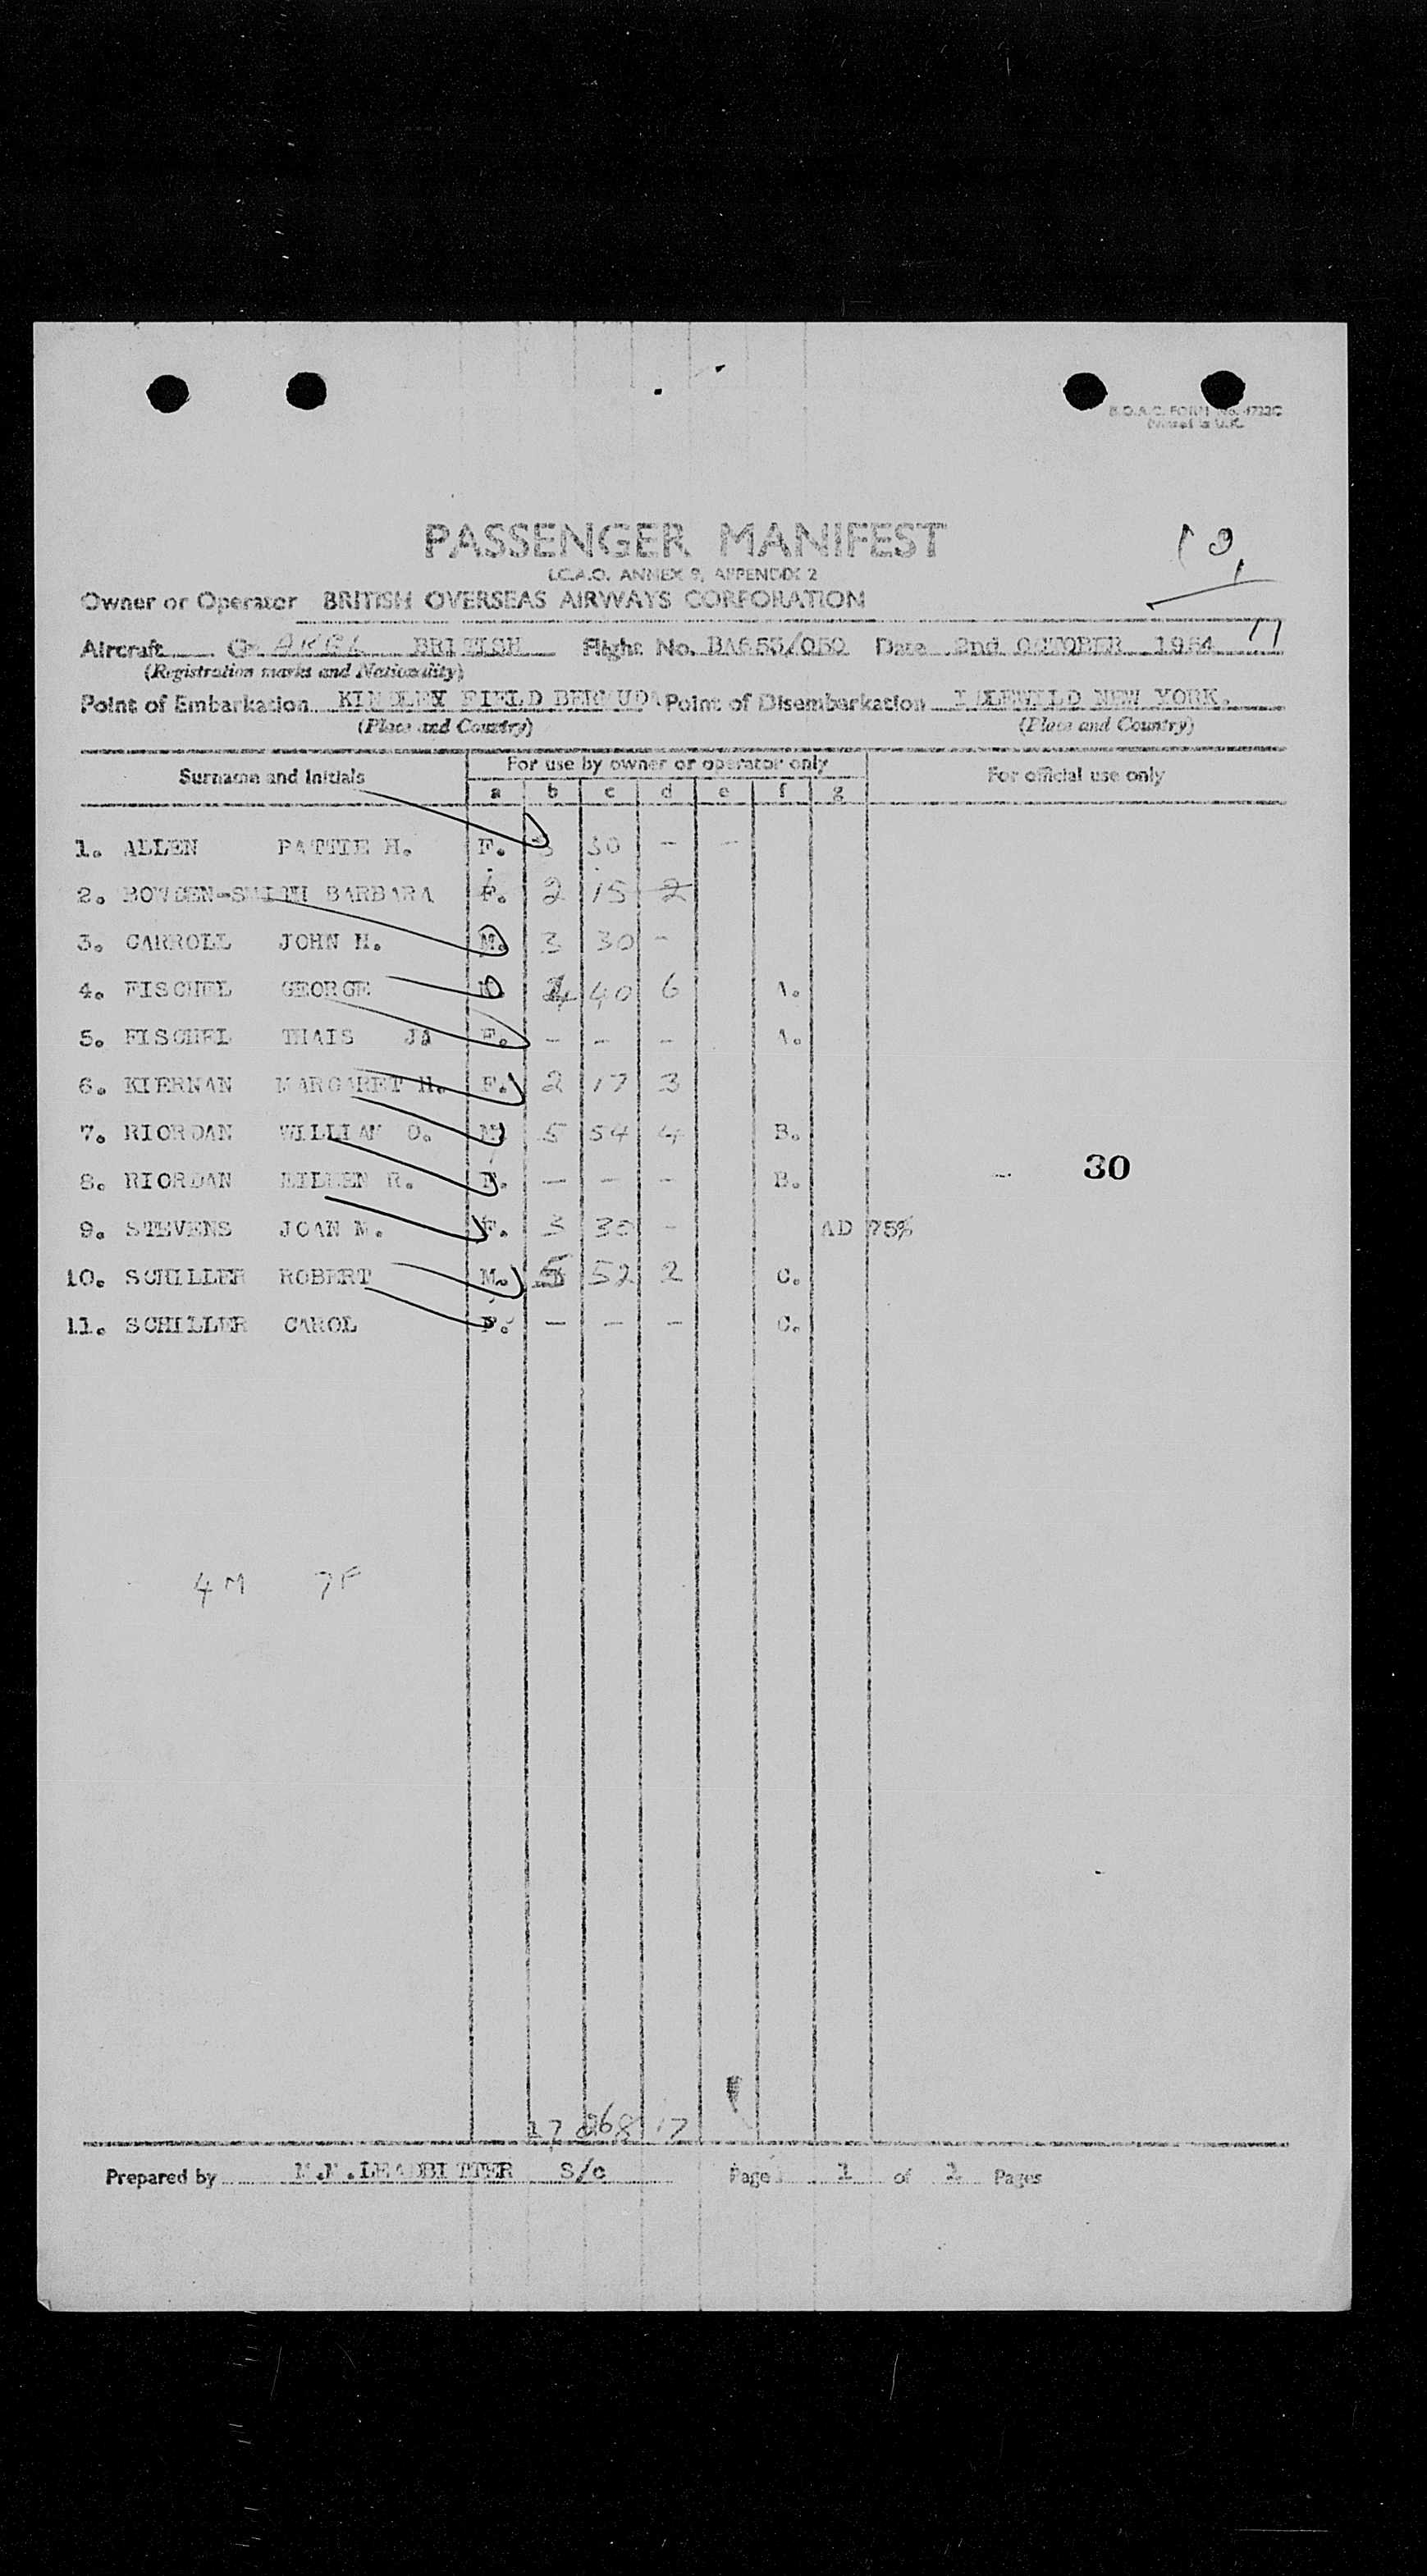 B.O.A.C. FORM No. 1722C
Printed in U.K.
PASSENGER MANIFEST
I.C.A.O. ANNEX 9, APPENDIX 2
Owner or Operator BRITISH OVERSEAS AIRWAYS CORPORATION
Aircraft G- BRITISH Flight No. BA655/050 Date 2nd OCTOBER 1954 11
(Registration marks and Nationality)
Point of Embarkation KINDLEY FIELD BERMUDA Point of Disembarkation IDLEWILD NEW YORK.
(Place and Country) (Place and Country)
Surname and Initials For use by owner or operator only For official use only
a b c d e f g
1. ALLEN PATTIE H. F. 3 30 - -
2. BOWDEN-SMITH BARBARA F. 2 15 2
3. CARROLL JOHN H. M. 3 30 -
4. FISCHEL GEORGE M. 4 40 6 A.
5. FISCHEL THAIS JA F. - - - A.
6. KIERNAN MARGARET H. F. 2 17 3
7. RIORDAN WILLIAM O. M. 5 54 4 B.
8. RIORDAN EILEEN R. F. - - - B.
30
9. STEVENS JOAN M. F. 3 30 - AD 75%
10. SCHILLER ROBERT M. 5 52 2 C.
11. SCHILLER CAROL F. - - - C.
4M 7F
27 268 17
Prepared by LEADBITTER S/c Page 1 of 1 Pages